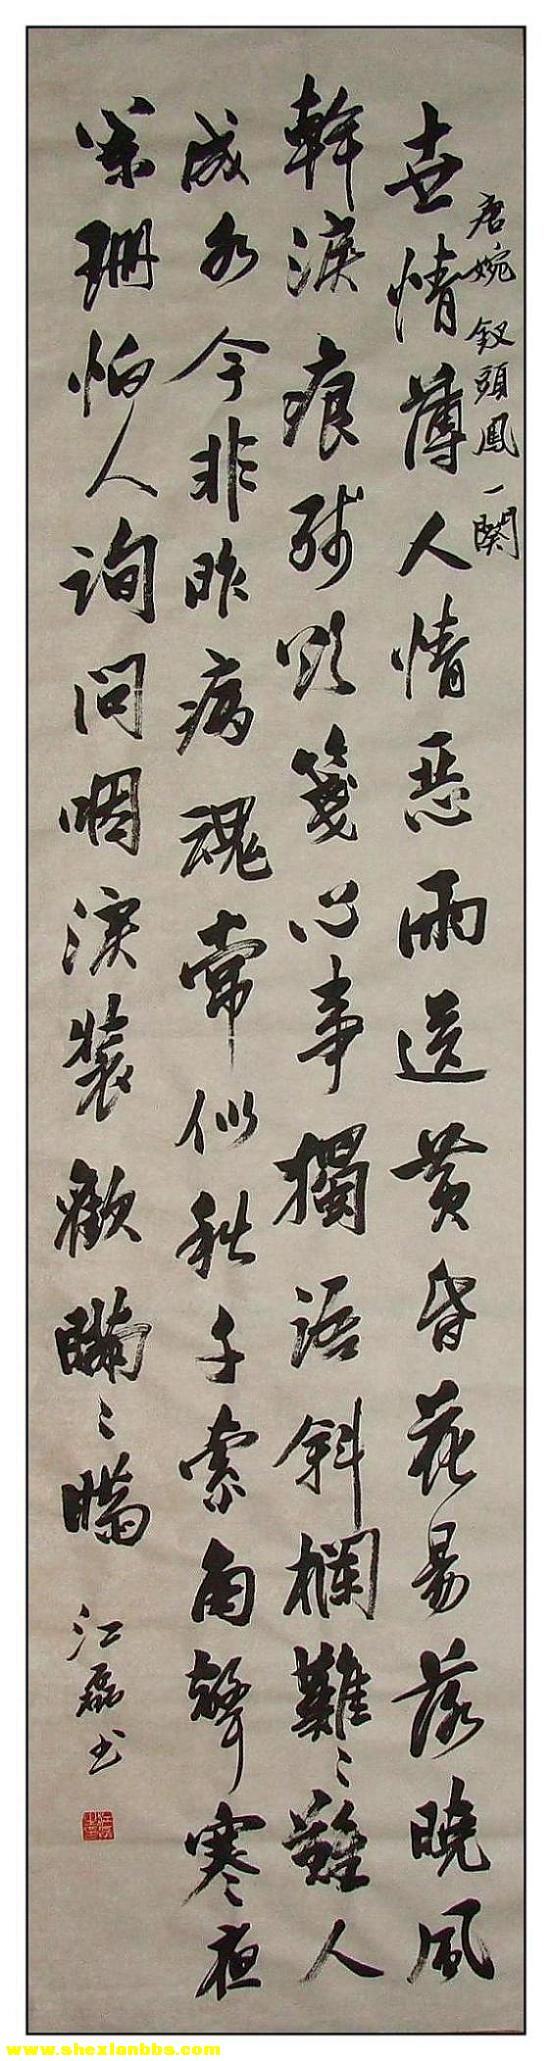 唐婉 釵頭鳳一闋
世情薄人情恶雨送黄昏花易落曉風
幹淚痕殘欲箋心事獨語斜欄難〻難人
成各今非昨病魂常似秋千索角聲寒夜
闌珊怕人詢問咽淚裝歡瞞〻瞞
江磊书
www.shexianbbs.com